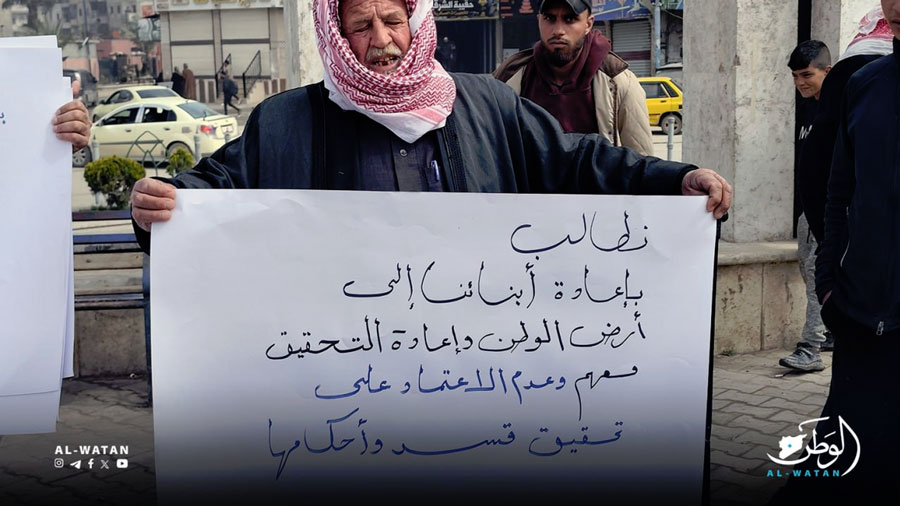 حقيبة الشرق
نطالب
بإعادة أبنائنا إلى
أرض الوطن وإعادة التحقيق
معهم وعدم الاعتماد على
تحقيق قسد وأحكامها
AL-WATAN
الوطن
AL-WATAN